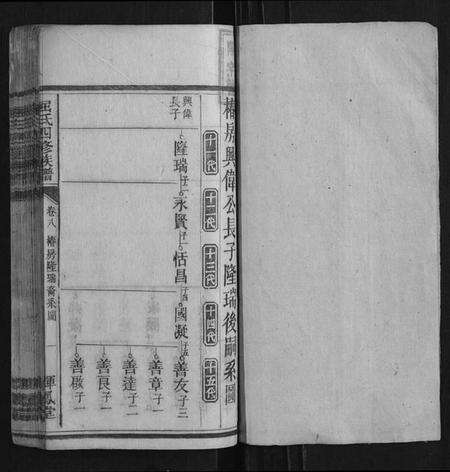 椿房興偉公長子隆瑞後嗣系圖
十一代 十二代 十三代 十四代 十五代
興偉長子
隆瑞 子一
永賢 子一
恬昌 子四
國凝 子五
善友 子三
善章 子一
善達 子二
善良 子一
善啟 子一
屈氏四修族譜
卷八 椿房隆瑞裔系圖